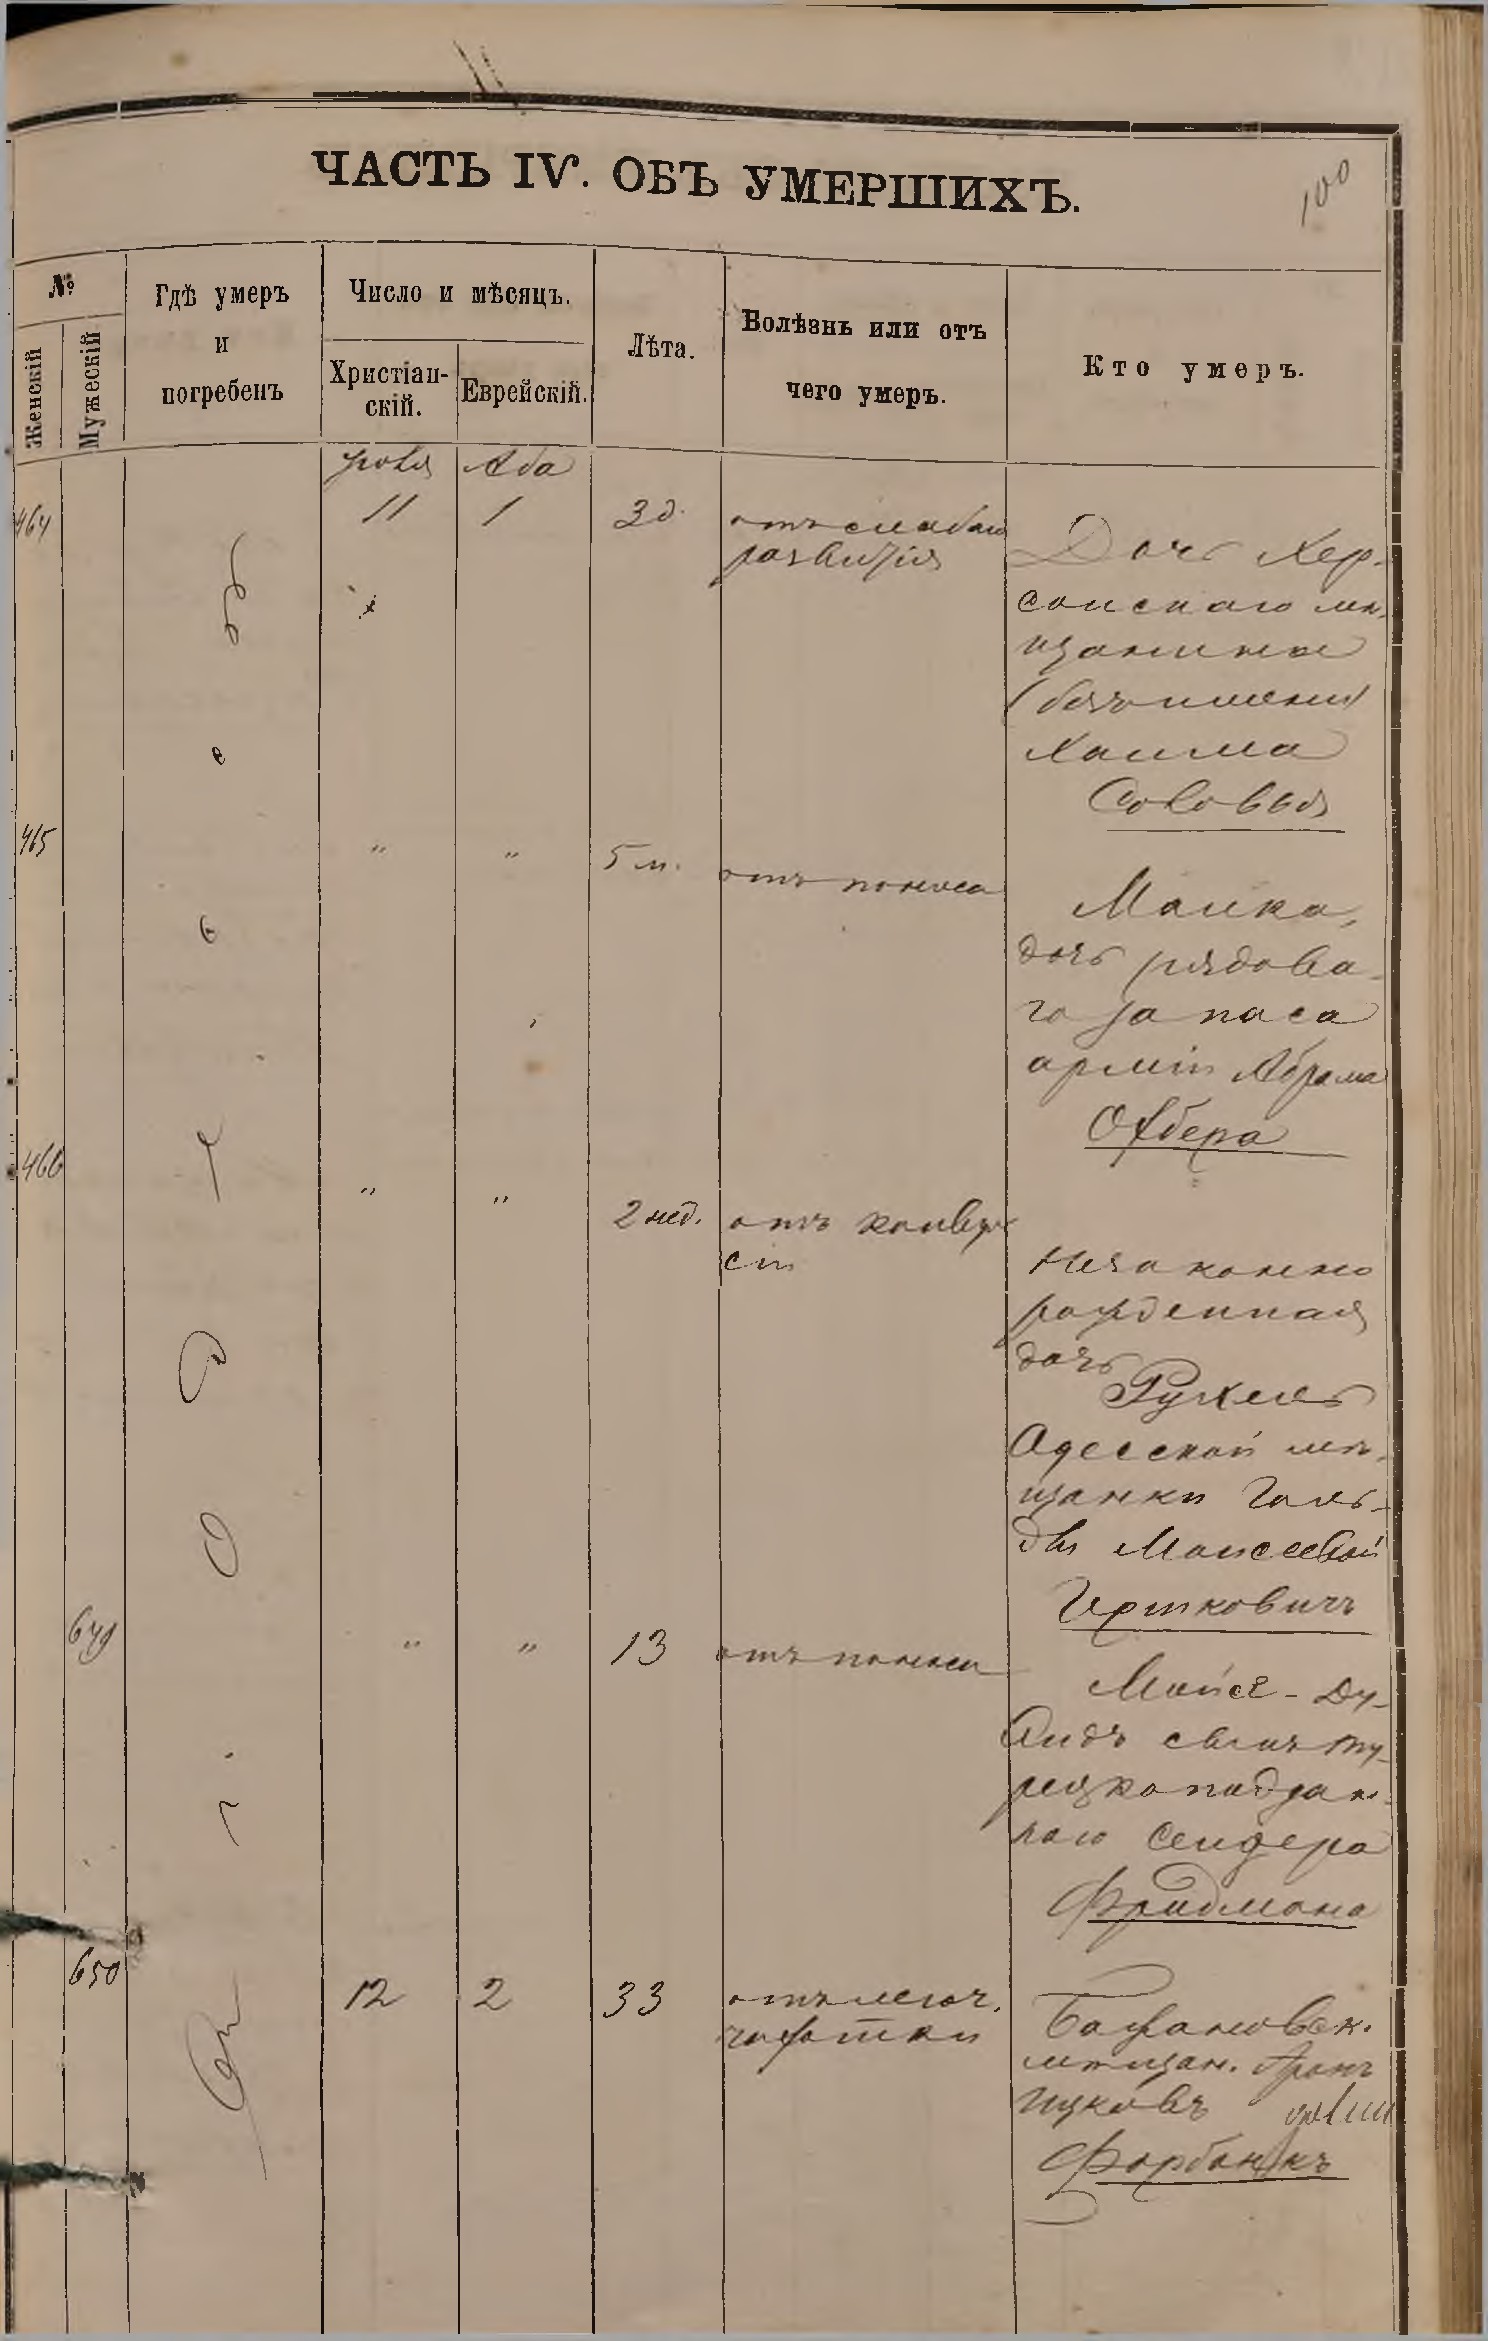 ЧАСТЬ IV. ОБЪ УМЕРШИХЪ.
100
№
Женскій
Мужескій
Гдѣ умеръ
и
погребенъ
Число и мѣсяцъ.
Христіан-
скій.
Еврейскій.
Лѣта.
Болѣзнь или отъ
чего умеръ.
Кто умеръ.
Аба
464
11
1
3 д.
отъ слабаго
развитія
Дочь Хер-
сонскаго мѣ-
щанина
(безъ имени)
Хаима
Соловья
465
"
"
5 м.
отъ поноса
Малка,
дочь рядова-
го запаса
арміи Абрама
466
"
"
2 нед.
отъ конвул
сіи
Незаконно
рожденная
дочь
Рухель
Одесской мѣ-
щанки Голь-
ды Моисеевой
Иршковичъ
649
"
"
13
отъ поноса
Мойсе-Ду-
видъ сынъ ту-
рецкоподдан-
наго Сендера
Фридмана
650
12
2
33
отъ легоч.
чахотки
мѣщан. Аронъ
Ицковъ
въ Одессѣ